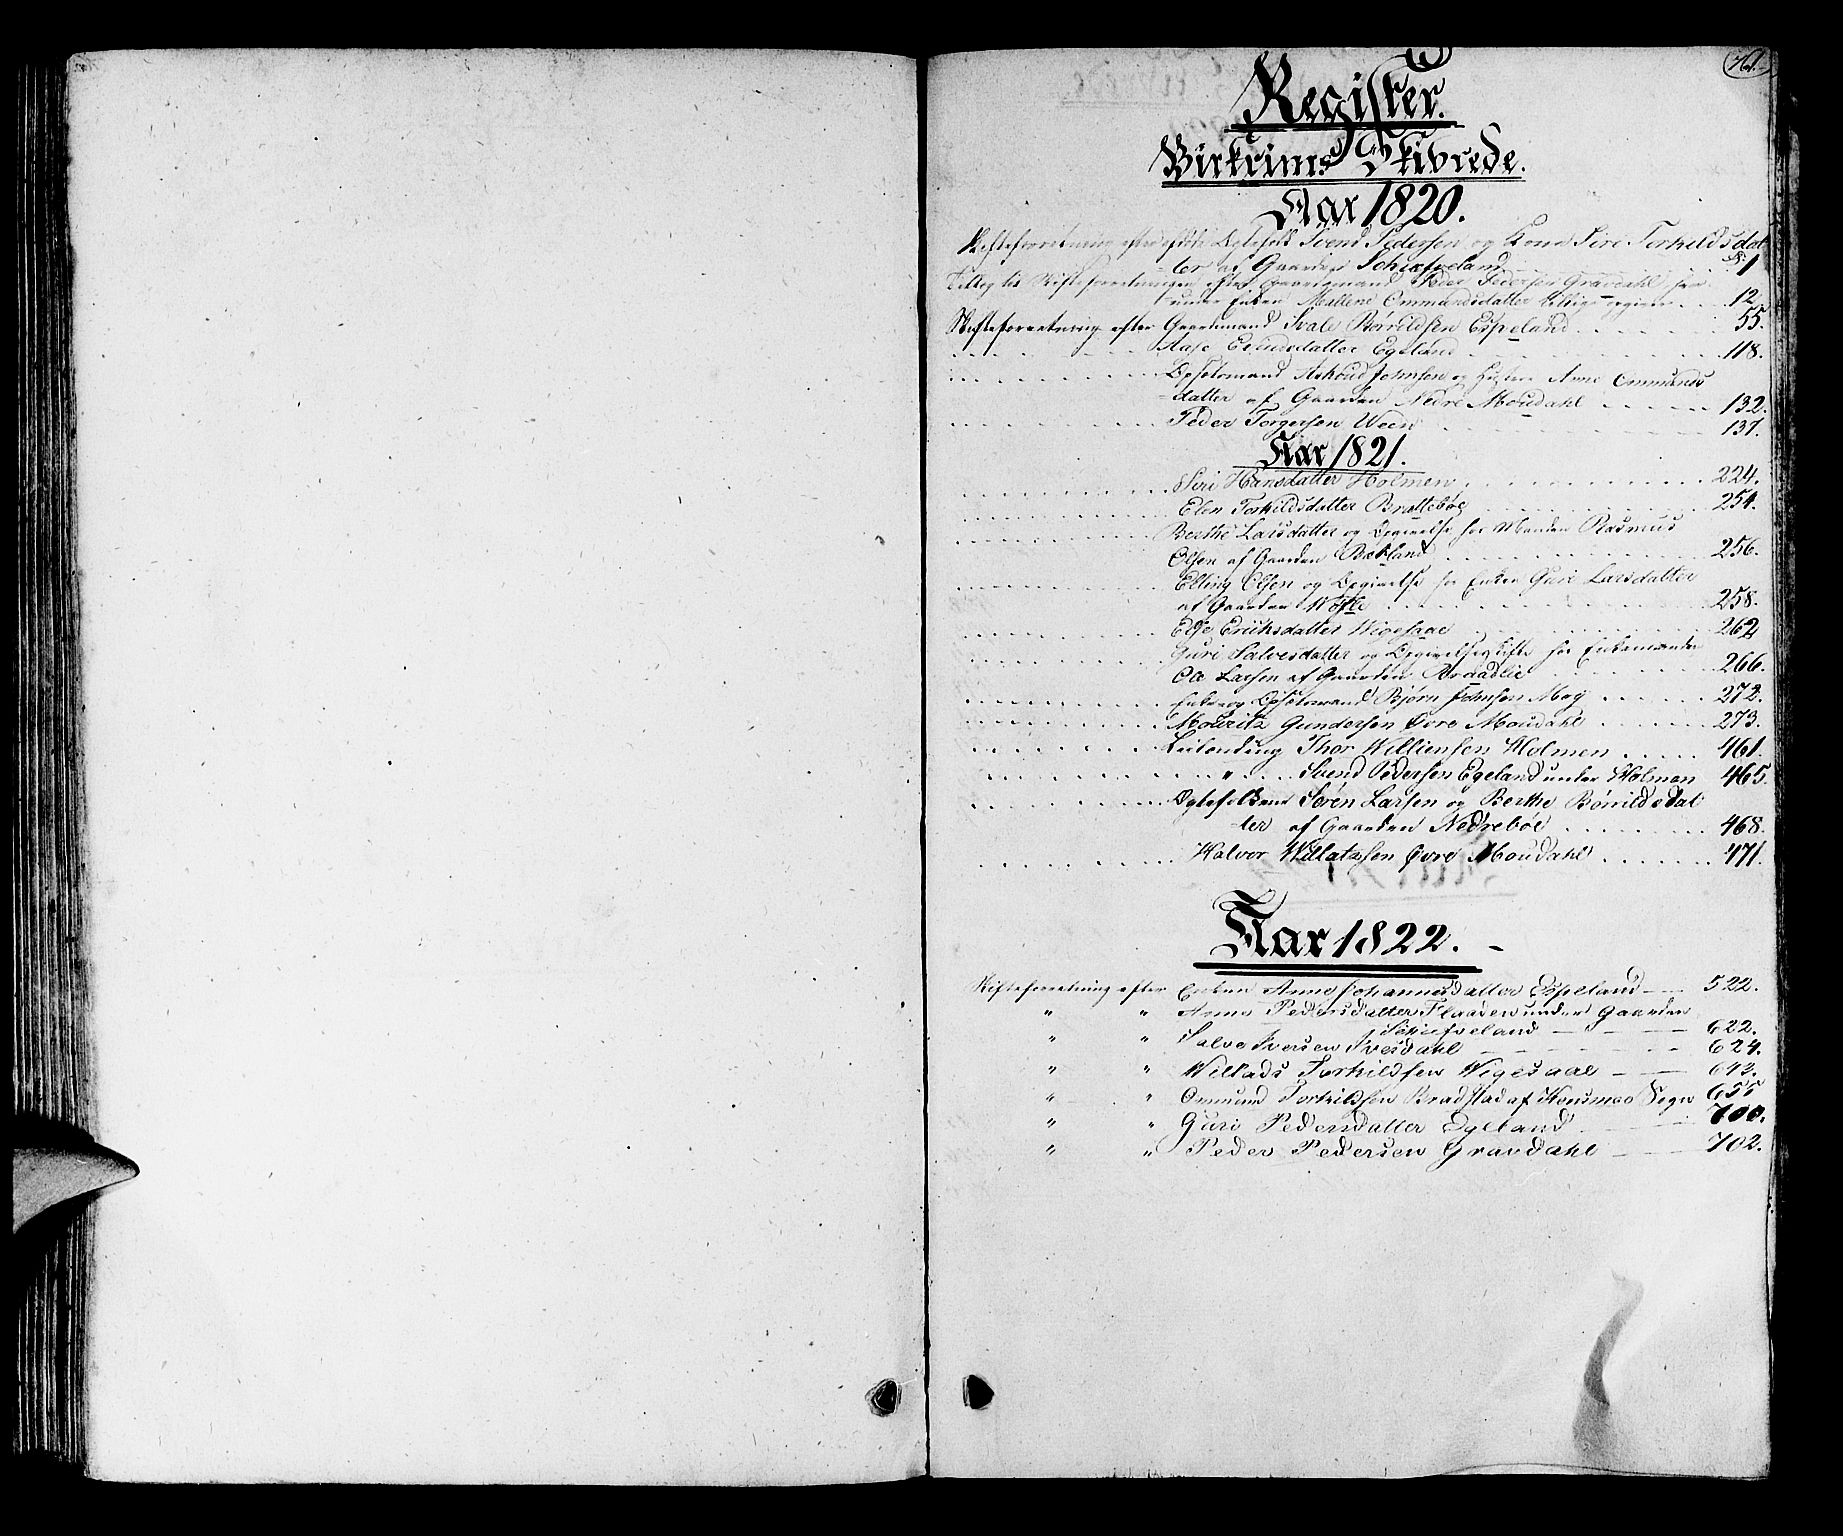 Register.
Birkrims Skibrede.
Aar 1820.
Skifteforretning efter afdøde Egtefolk Svend Pedersen og Kone Siri Torkildsdat
ter af Gaarden Schiæfveland 1
Tillæg til Skifteforretningen efter Gaardmand Peder Pedersen Gravdahl
under Enken Mallene Ommundsdatter tillige 12.
Skifteforretning efter Gaardmand Svale Børrildsen Espeland 55.
Aase datter Egeland 118.
Opsidsmand Askoud Johnsen og Hustrue Anne Ommunds
datter af Gaarden Nedre Moudahl 132.
Peder Torgersen Ween 137.
Aar 1821.
Siri Hansdatter Holmen 224.
Elen Torkildsdatter Brattebøe 254.
Berthe Larsdatter og Opgivelse for Manden Rasmus
Olsen af Gaarden Birkland 256.
Elling Olsen og Opgivelse for Enken Guri Larsdatter
af Gaarden 258.
Else Eriiksdatter Wigesaae 262
Guri Salvesdatter og for Enkemanden
Ole Larsen af Gaarden Braadlie 266.
Enke og Opsidsmand Bjørn Johnsen Moy 272.
Mouritz Gundersen Øvre Moudahl 273.
Leilending Thor Williensen Holmen 461.
" Svend Pedersen Egeland under Holmen 465.
Egtefolkene Søren Larsen og Berthe Børrildsdat
ter af Gaarden Nedrebøe 468.
Halvor Willatzsen Øvre Moudahl 471.
Aar 1822.
Skifteforretning efter Enken Anne Johannesdatter Espeland 522.
" " Anne Pedersdatter Flaaden under Gaarden
Schiæfveland 622.
" " Salve Iversen Ivesdahl 624.
" " Willads Torkildsen Wigesaae 643.
" " Ommund Torkildsen Bradstad af Heusmoe Sogn 655
" " Guri Pedersdatter Egeland 700.
" " Peder Pedersen Gravdahl 702.